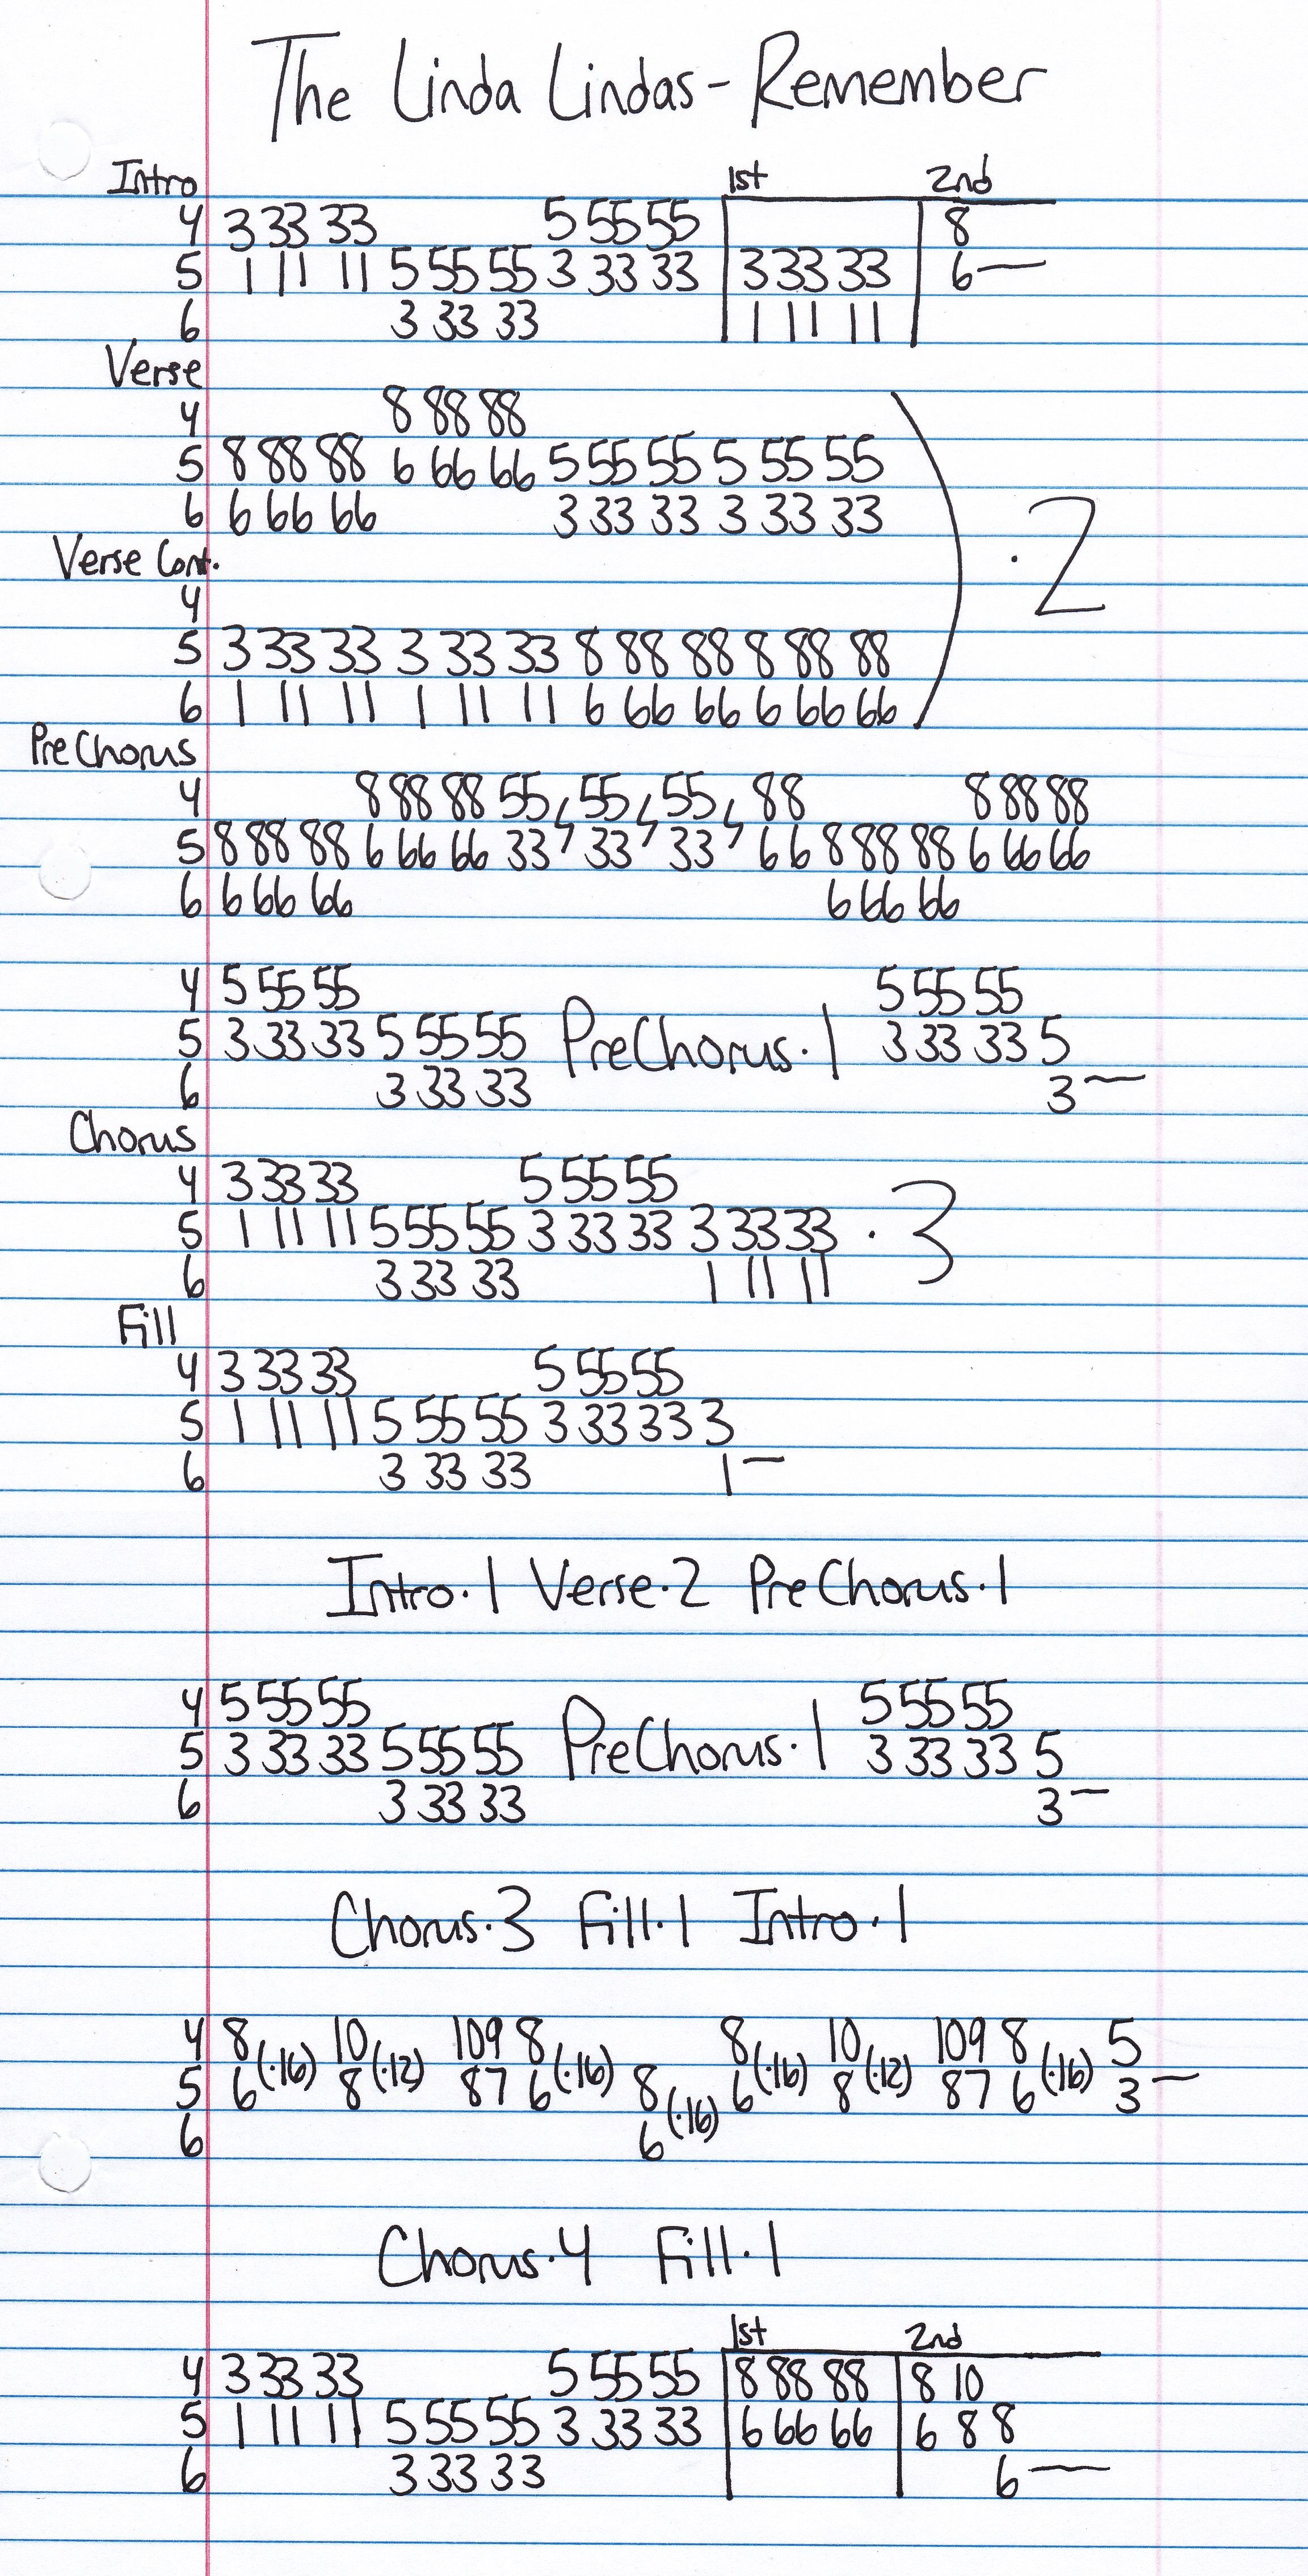 The Linda Lindas - Remember
Intro 1st 2nd
4 3 33 33 5 55 55 8
5 1 11 11 5 55 55 3 33 33 3 33 33 6—
6 3 33 33 1 11 11
Verse
4 8 88 88
5 8 88 88 6 66 66 5 55 55 5 55 55
6 6 66 66 3 33 33 3 33 33
·2
Verse Cont.
4
5 3 33 33 3 33 33 8 88 88 8 88 88
6 1 11 11 1 11 11 6 66 66 6 66 66
PreChorus
4 8 88 88 55, 55, 55, 88 8 88 88
5 8 88 88 6 66 66 33 33 33 66 8 88 88 6 66 66
6 6 66 66 6 66 66
4 5 55 55 5 55 55
5 3 33 33 5 55 55 PreChorus·1 3 33 33 5
6 3 33 33 3—
Chorus
4 3 33 33 5 55 55
5 1 11 11 5 55 55 3 33 33 3 33 33 ·3
6 3 33 33 1 11 11
Fill
4 3 33 33 5 55 55
5 1 11 11 5 55 55 3 33 33 3
6 3 33 33 1—
Intro·1 Verse·2 PreChorus·1
4 5 55 55 5 55 55
5 3 33 33 5 55 55 PreChorus·1 3 33 33 5
6 3 33 33 3—
Chorus·3 Fill·1 Intro·1
4 8 (·16) 10 (·12) 109 8 (·16) 8 (·16) 10 (·12) 109 8 (·16) 5
5 6 8 87 6 8 (·16) 6 8 87 6 3—
6 6
Chorus·4 Fill·1
1st 2nd
4 3 33 33 5 55 55 8 88 88 8 10
5 1 11 11 5 55 55 3 33 33 6 66 66 6 8 8
6 3 33 33 6—